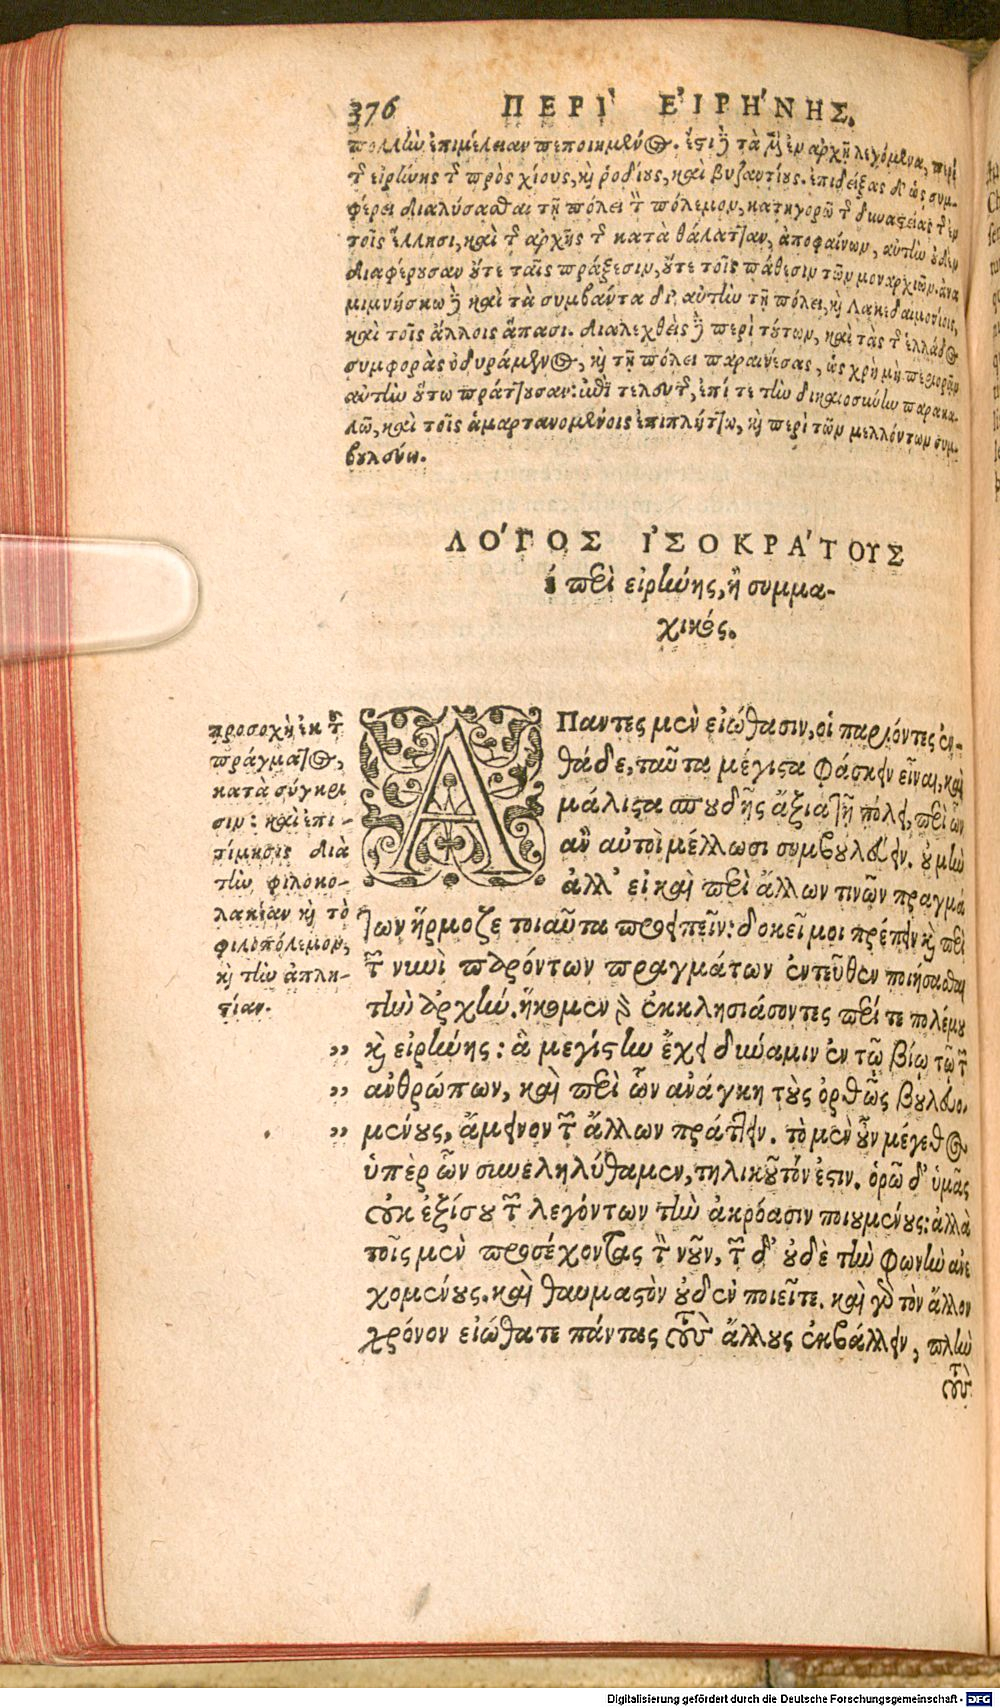 376 ΠΕΡΙ' ΕἸΡΗ'ΝΗΣ.
πολλὴν ἐπιμέλειαν πεποιημένος. ἔστι δὲ τὰ μὲν ἐν ἀρχῇ λεγόμενα, περὶ
τῆς εἰρήνης τῆς πρὸς χίους, καὶ ῥοδίους, καὶ βυζαντίους. ἐπιδείξας δ' ὡς συμ-
φέρει διαλύσασθαι τῇ πόλει τὸν πόλεμον, κατηγορῶ τῆς δυναστείας τῆς ἐν
τοῖς ἕλλησι, καὶ τῆς ἀρχῆς τῆς κατὰ θάλατταν, ἀποφαίνων, αὐτὴν οὐδὲν
διαφέρουσαν οὔτε ταῖς πράξεσιν, οὔτε τοῖς πάθεσιν τῶν μοναρχιῶν. ἀνα
μιμνήσκω δὲ καὶ τὰ συμβάντα δι' αὐτὴν τῇ πόλει, καὶ Λακεδαιμονίοις,
καὶ τοῖς ἄλλοις ἅπασι. διαλεχθεὶς δὲ περὶ τούτων, καὶ τὰς τῆς ἑλλάδος
συμφορὰς ὀδυράμενος, καὶ τῇ πόλει παραινέσας, ὡς χρὴ μὴ περιορᾶν
αὐτὴν οὕτω πράττουσαν: ἐπὶ τελευτῆς, ἐπί τε τὴν δικαιοσύνην παρακα-
λῶ, καὶ τοῖς ἁμαρτανομένοις ἐπιπλήττω, καὶ περὶ τῶν μελλόντων συμ-
βουλεύω.
ΛΟ'ΓΟΣ ἸΣΟΚΡΑ'ΤΟΥΣ
ὁ περὶ εἰρήνης, ἢ συμμα-
χικός.
προσοχὴ ἐκ τοῦ
πράγματος,
κατὰ σύγκρι
σιν: καὶ ἐπι-
τίμησις διὰ
τὴν φιλοκο-
λακίαν καὶ τὸ
φιλοπόλεμον,
καὶ τὴν ἀπλη-
στίαν.
ΑΠαντες μὲν εἰώθασιν, οἱ παριόντες ἐν-
θάδε, ταῦτα μέγιστα φάσκειν εἶναι, καὶ
μάλιστα σπουδῆς ἄξια τῇ πόλει, περὶ ὧν
ἂν αὐτοὶ μέλλωσι συμβουλεύειν. οὐ μὴν
ἀλλ' εἰ καὶ περὶ ἄλλων τινῶν πραγμά
των ἥρμοζε τοιαῦτα προειπεῖν: δοκεῖ μοι πρέπειν καὶ περὶ
τῶν νυνὶ παρόντων πραγμάτων ἐντεῦθεν ποιήσασθαι
τὴν ἀρχήν. ἥκομεν γὰρ ἐκκλησιάσοντες περί τε πολέμου
„ καὶ εἰρήνης: ἃ μεγίστην ἔχει δύναμιν ἐν τῷ βίῳ τῷ τῶν
„ ἀνθρώπων, καὶ περὶ ὧν ἀνάγκη τοὺς ὀρθῶς βουλευο-
„ μένους, ἄμεινον τῶν ἄλλων πράττειν. τὸ μὲν οὖν μέγεθος
ὑπὲρ ὧν συνεληλύθαμεν, τηλικοῦτόν ἐστιν. ὁρῶ δ' ὑμᾶς
οὐκ ἐξίσου τῶν λεγόντων τὴν ἀκρόασιν ποιουμένους: ἀλλὰ
τοῖς μὲν προσέχοντας τὸν νοῦν, τῶν δ' οὐδὲ τὴν φωνὴν ἀνε
χομένους. καὶ θαυμαστὸν οὐδὲν ποιεῖτε. καὶ γὰρ τὸν ἄλλον
χρόνον εἰώθατε πάντας τοὺς ἄλλους ἐκβάλλειν, πλὴν
τοὺς
Digitalisierung gefördert durch die Deutsche Forschungsgemeinschaft - DFG